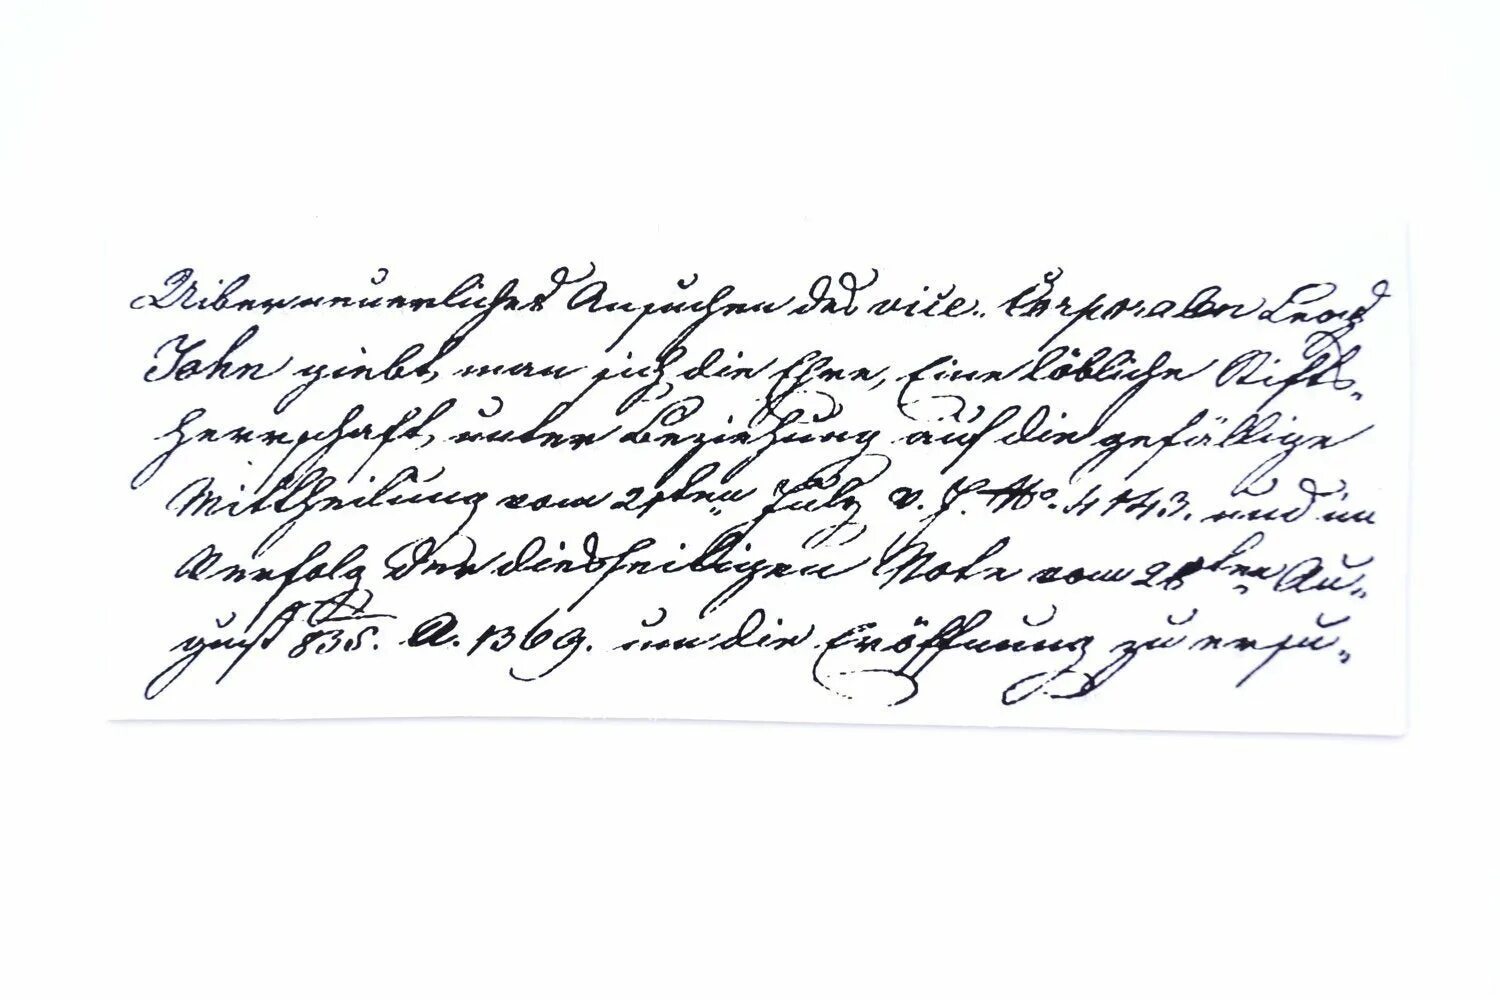 Uiber neuerliches Ansuchen des vice. Corporalen
John giebt man sich die Ehre, Eine löbliche Stifts-
herrschaft, unter Beziehung auf die gefällige
Mittheilung vom ten July v. J. No. 4143. und in
Verfolg der diesseitigen Note vom ten Au-
gust 835. A. 1369. um die Eröffnung zu ersu-